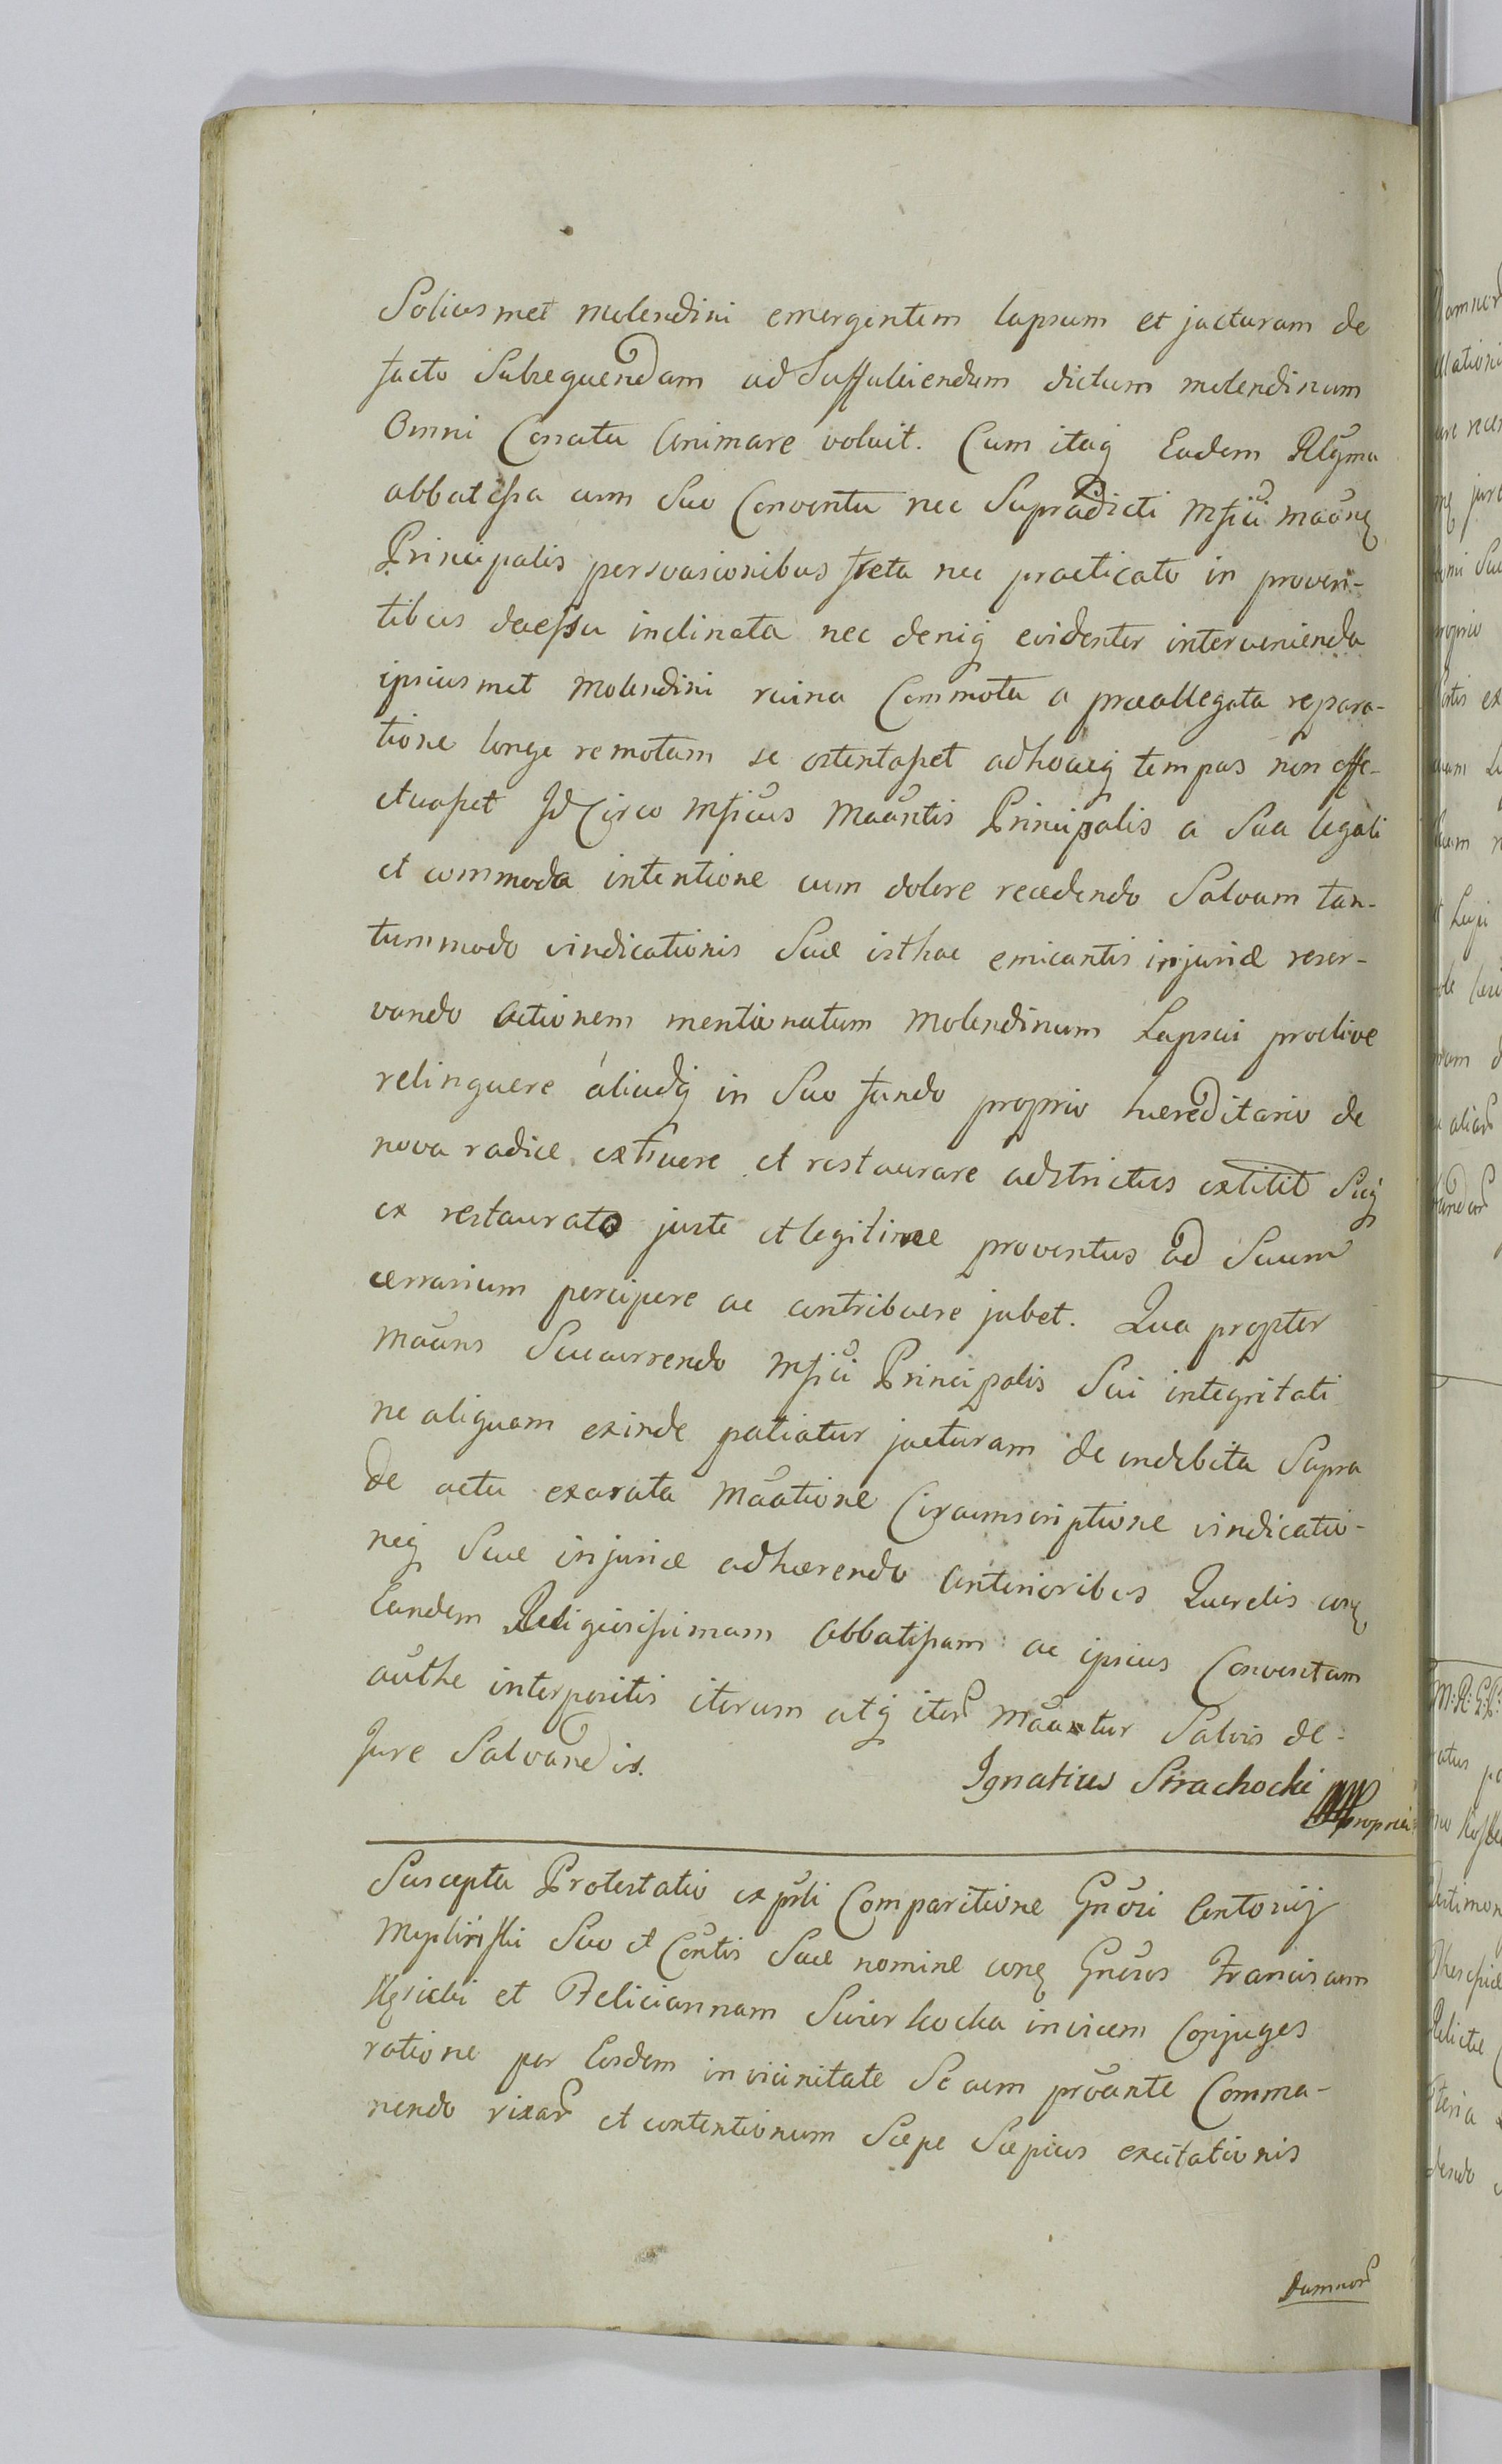 Soliusmet molendini emergentem lapsum et jacturam de
facto Subsequendam ad Suffulciendum dictum molendinum
Omni Conatu Animare voluit. Cum itaq Eadem Rlgma
abbatissa cum Suo Conventu nec Supradicti Mfici maong
Principalis persvasionibus freta nec practicato in proven-
tibus decessu inclinata nec deniq evidenter intervenienda
ipsiusmet Molendini ruina Commota a praeallegata repara-
tione longe remotam se ostentasset adhocusq tempus non effe-
ctuasset Id Circo Mficus Maantis Principalis a Sua legali
et commoda intentione cum dolore recedendo Salvam tan-
tummodo vindicationis Suae isthac emicantis injuriae reser-
vando Actionem mentionatum Molendinum Lapsui proclive
relinquere áliudq in Suo fundo proprio haereditario de
nova radice extruere et restaurare adstrictus extitit Suq
ex restaurato juste et legitime proventus ad Suum
aerrarium percipere ac contribuere jubet. Qua propter
Maans Succurrendo Mfici Principalis Sui integritati
ne aliquam exinde patiatur jacturam de indebita Supra
de actu exarata Maatione Circumscriptione vindicatio-
neq Suae injuriae adhaerendo Anterioribus Querelis cong
Eandem Religiosissimam Abbatissam ac ipsius Conventum
authe interpositis iterum atq iter Maantur Salvis de
Jure Salvandis.
Ignatius Strachocki
Mppropria
Suscepta Protestatio ex pnli Comparitione Gnosi Antonij
Myslinski Suo et Contis Suae nomine cong Gnosos Franciscum
et Feliciannam Swierkocka invicem Conjuges
ratione per Eosdem in vicinitate Secum proante Comma-
nendo rixar et contentionum Saepe Saepius excitationis
Damnor